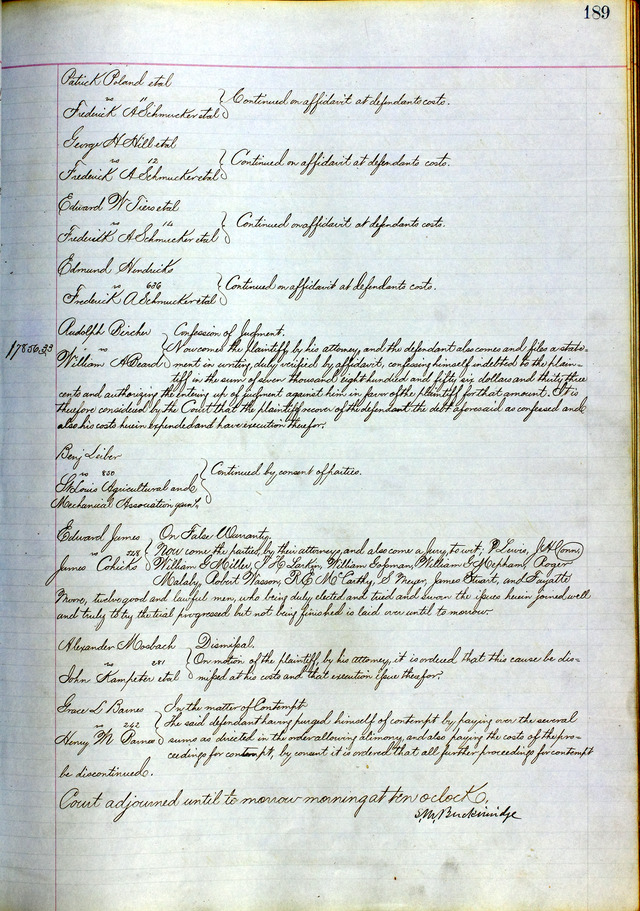 189
Patrick Poland etal
vs 11 Continued on affidavit at defendants costs.
Frederick A Schmucker etal
George H Hill etal
vs 12 Continued on affidavit at defendants costs.
Frederick A Schmucker etal
Edward W Tiers etal
vs 14 Continued on affidavit at defendants costs.
Frederick A Schmucker etal
Edmund Hendricks
vs 636 Continued on affidavit at defendants costs.
Frederick A Schmucker etal
Rudolph Bircher Confession of Judgment.
$7856.33 vs Now come the plaintiff by his attorney, and the defendant also comes and files a state-
William A Beard ment in writing duly verified by affidavit, confessing himself indebted to the plain-
tiff in the sum of seven thousand eight hundred and fifty six dollars and thirty three
cents and authorizing the entering up of judgment against him in favor of the plaintiff for that amount. It is
therefore considered by the Court that the plaintiff recover of the defendant the debt aforesaid as confessed and
also his costs herein expended and have execution therefor.
Benj Leiber
vs 850 Continued by consent of parties.
St Louis Agricultural and
Mechanical Association
Edward James On False Warranty.
vs Now come the parties, by their attorneys, and also come a Jury, to wit: P Lewis, J H Conn,
James Cohick William G Miller, J H Larkin, William Gosman, William G Mepham, Roger
Malaby, Robert Wasson, R E McCarthy, S Meyer, James Stuart, and Fayatte
twelve good and lawful men, who being duly elected and tried and sworn the issues herein joined well
and truly to try the trial progressed but not being finished is laid over until to morrow.
Alexander Mosbach Dismissal.
vs 281 On motion of the plaintiff, by his attorney, it is ordered that this cause be dis=
John Kampeter etal missed at his costs and that execution issue therefor.
Grace L Barnes In the matter of Contempt
vs 242 The said defendant having purged himself of contempt by paying over the several
Henry M Barnes sums as directed in the order allowing alimony, and also paying the costs of the pro=
ceedings for contempt, by consent it is ordered that all further proceedings for contempt
be discontinued.
Court adjourned until to morrow morning at ten o clock.
S.M. Breckinridge